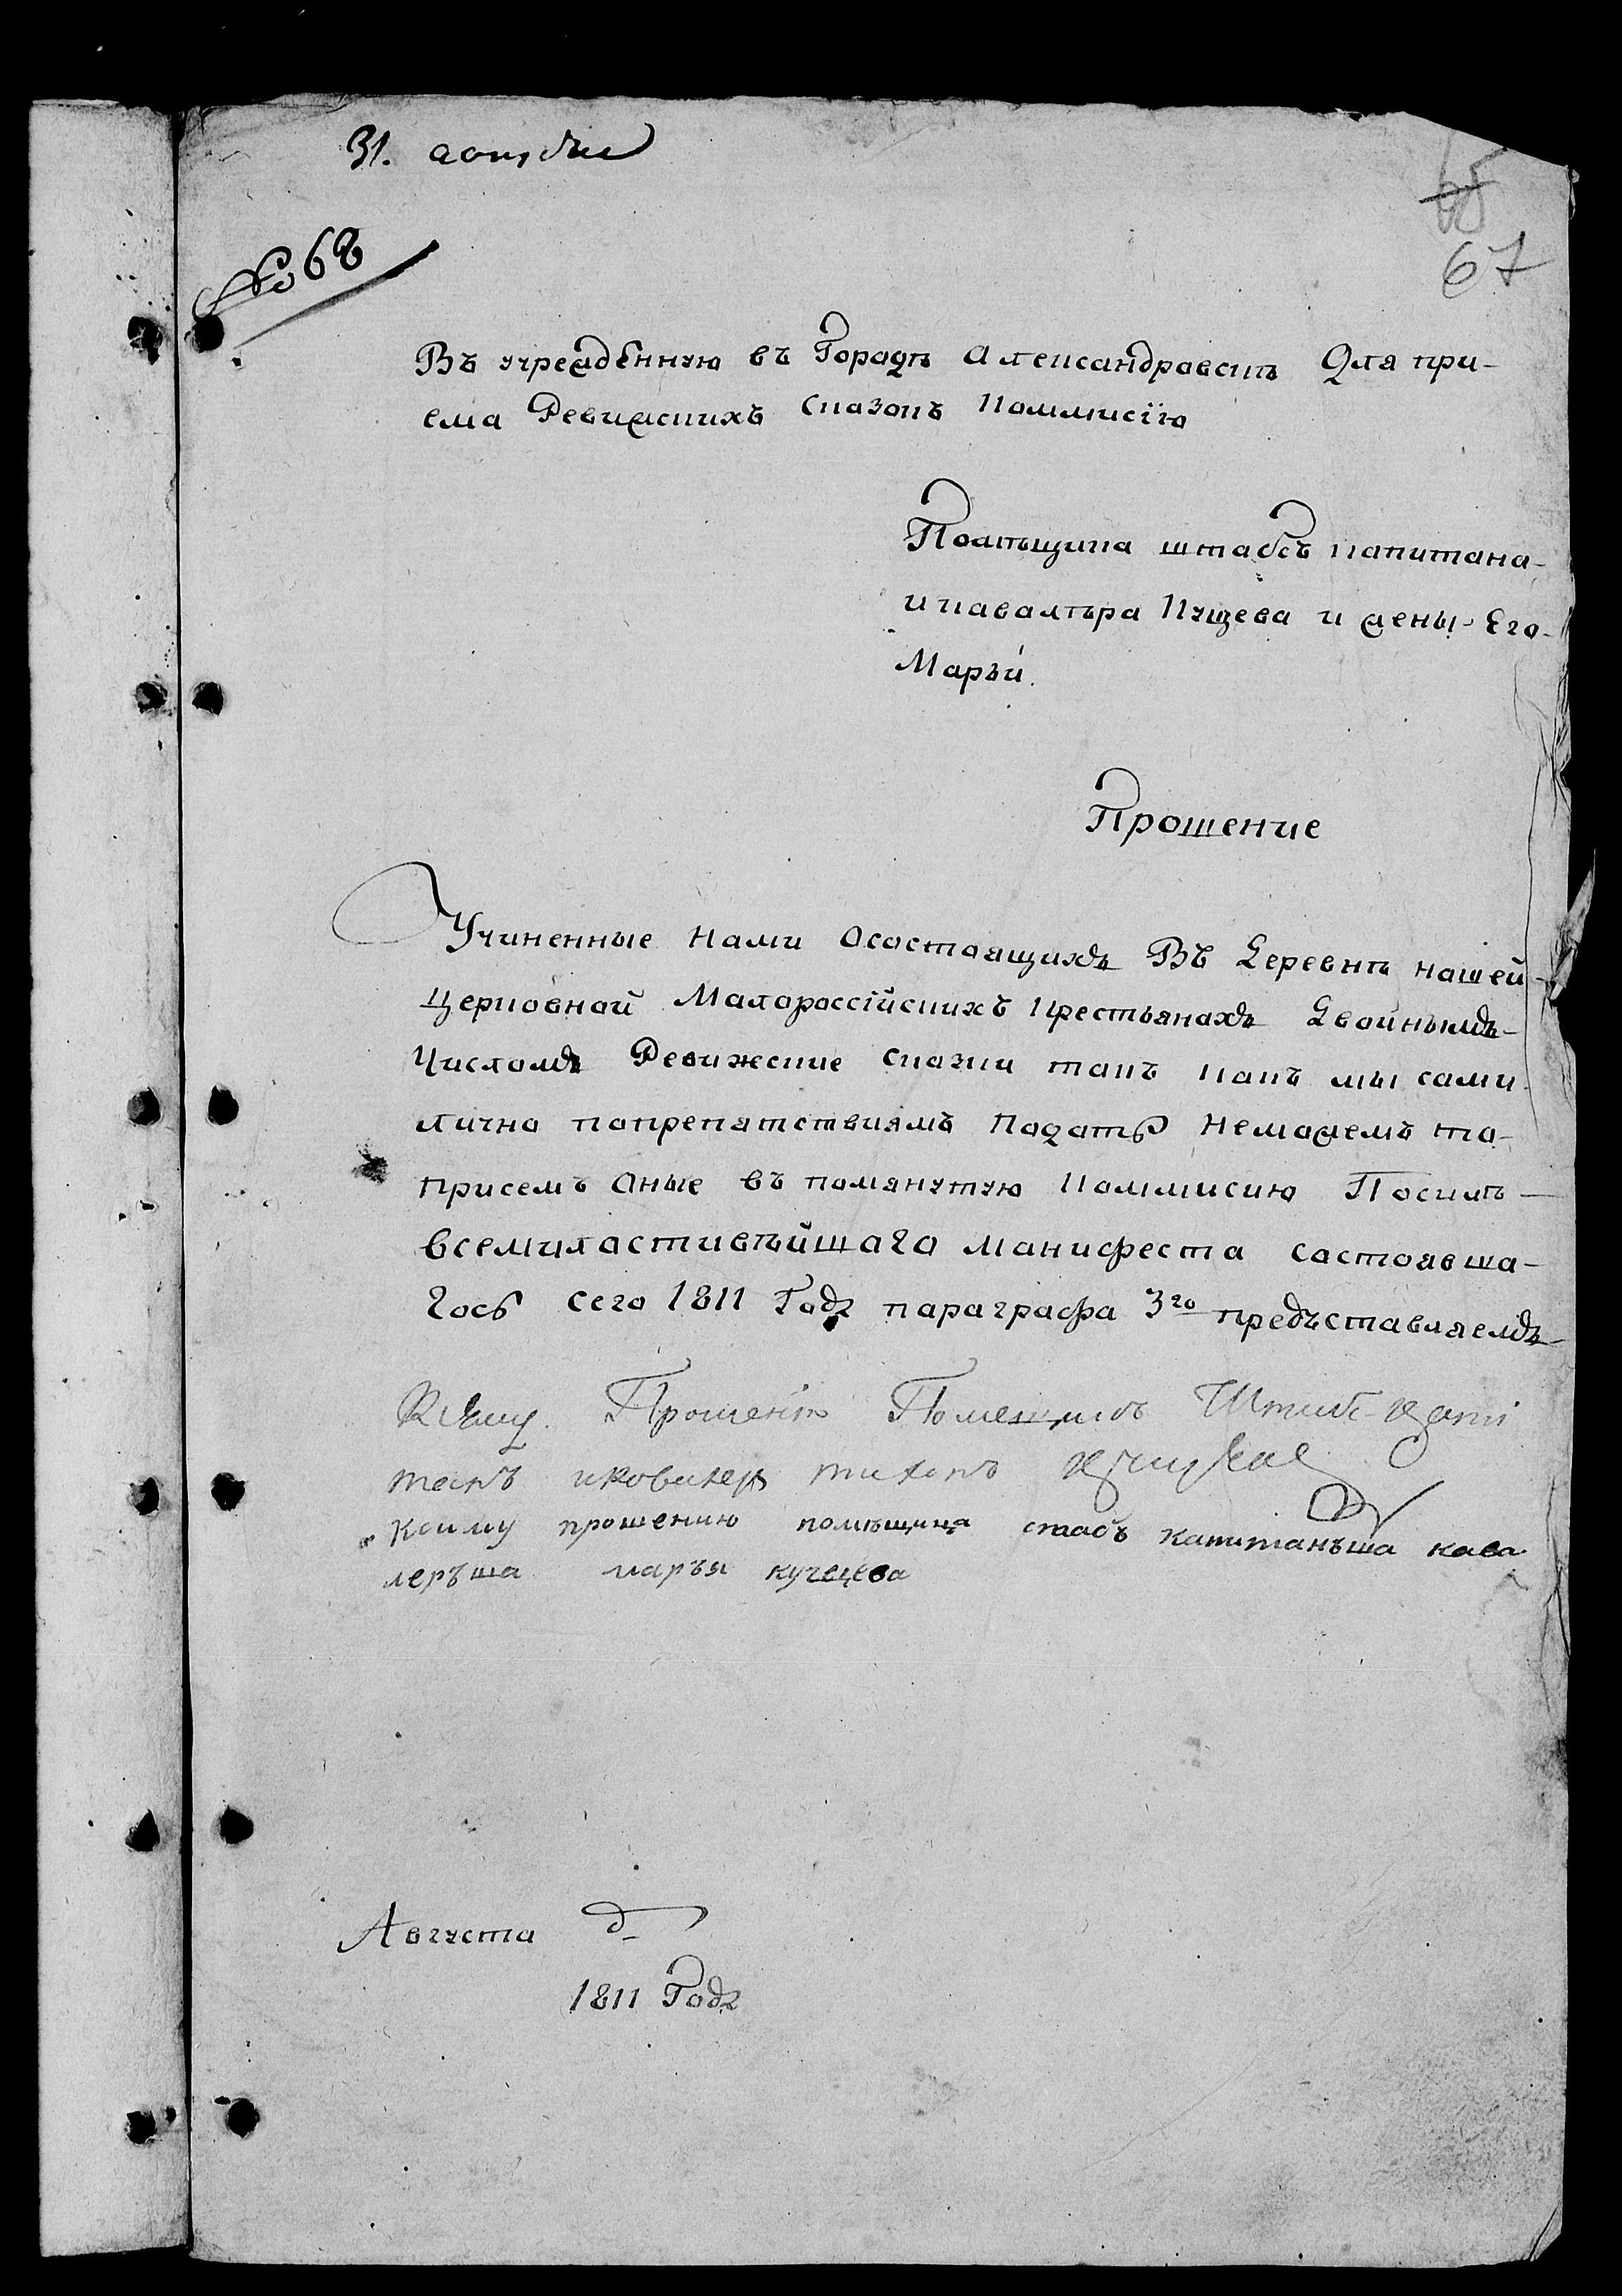 31. августа
№ 68
65
67
Въ учрежденную въ Городѣ Александравскѣ Для при-
ема Ревижскихъ Сказокъ Коммисїю
Помѣщика штабсъ капитана-
и кавалѣра Кущева и жены Его-
Марьи.
Прошение
Учиненные Нами Осостоящихъ Въ Деревнѣ нашей-
Церковной Малороссїйскихъ Крестьянахъ Двойнымъ-
Числомъ Ревижские Сказки такъ какъ мы сами
лично попрепятствиямъ Подать Неможемъ то-
присемъ Оные въ помянутую Коммисию Посилѣ-
всемиластивѣйшаго манифеста састоявша-
гось сего 1811 Года параграфа 3го предъставляемъ-
Ксему Прошенїю Помещикъ Штабс-капи
танъ икавалеръ тихонъ
Ксиму прошению помѣщица стабъ капитаньша кава
лерьша марья
Августа д
1811 Года